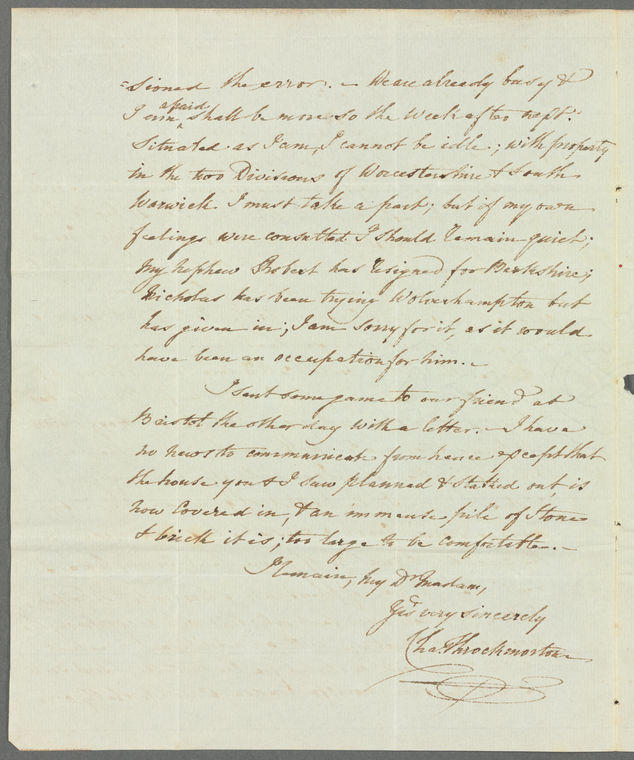 =sioned the error. – We are already busy &
I am afraid shall be more so the Week after next.
Situated as I am, I cannot be idle; with property
in the two Divisions of Worcestershire & South
Warwick. I must take a part; but if my own
feelings were consulted I should remain quiet;
My Nephew Robert has resigned for Berkshire;
Nicholas has been trying Wolverhampton but
has given in; I am sorry for it, as it would
have been an occupation for him. –
I sent some game to our friend at
Bristol the other day with a letter. – I have
no news to communicate from hence except that
the house you & I saw planned & staked out, is
now Covered in, & an immense pile of Stone
& brick it is; too large to be comfortable. –
I remain, My Dr Madam,
Yrs very sincerely
Cha. Throckmorton